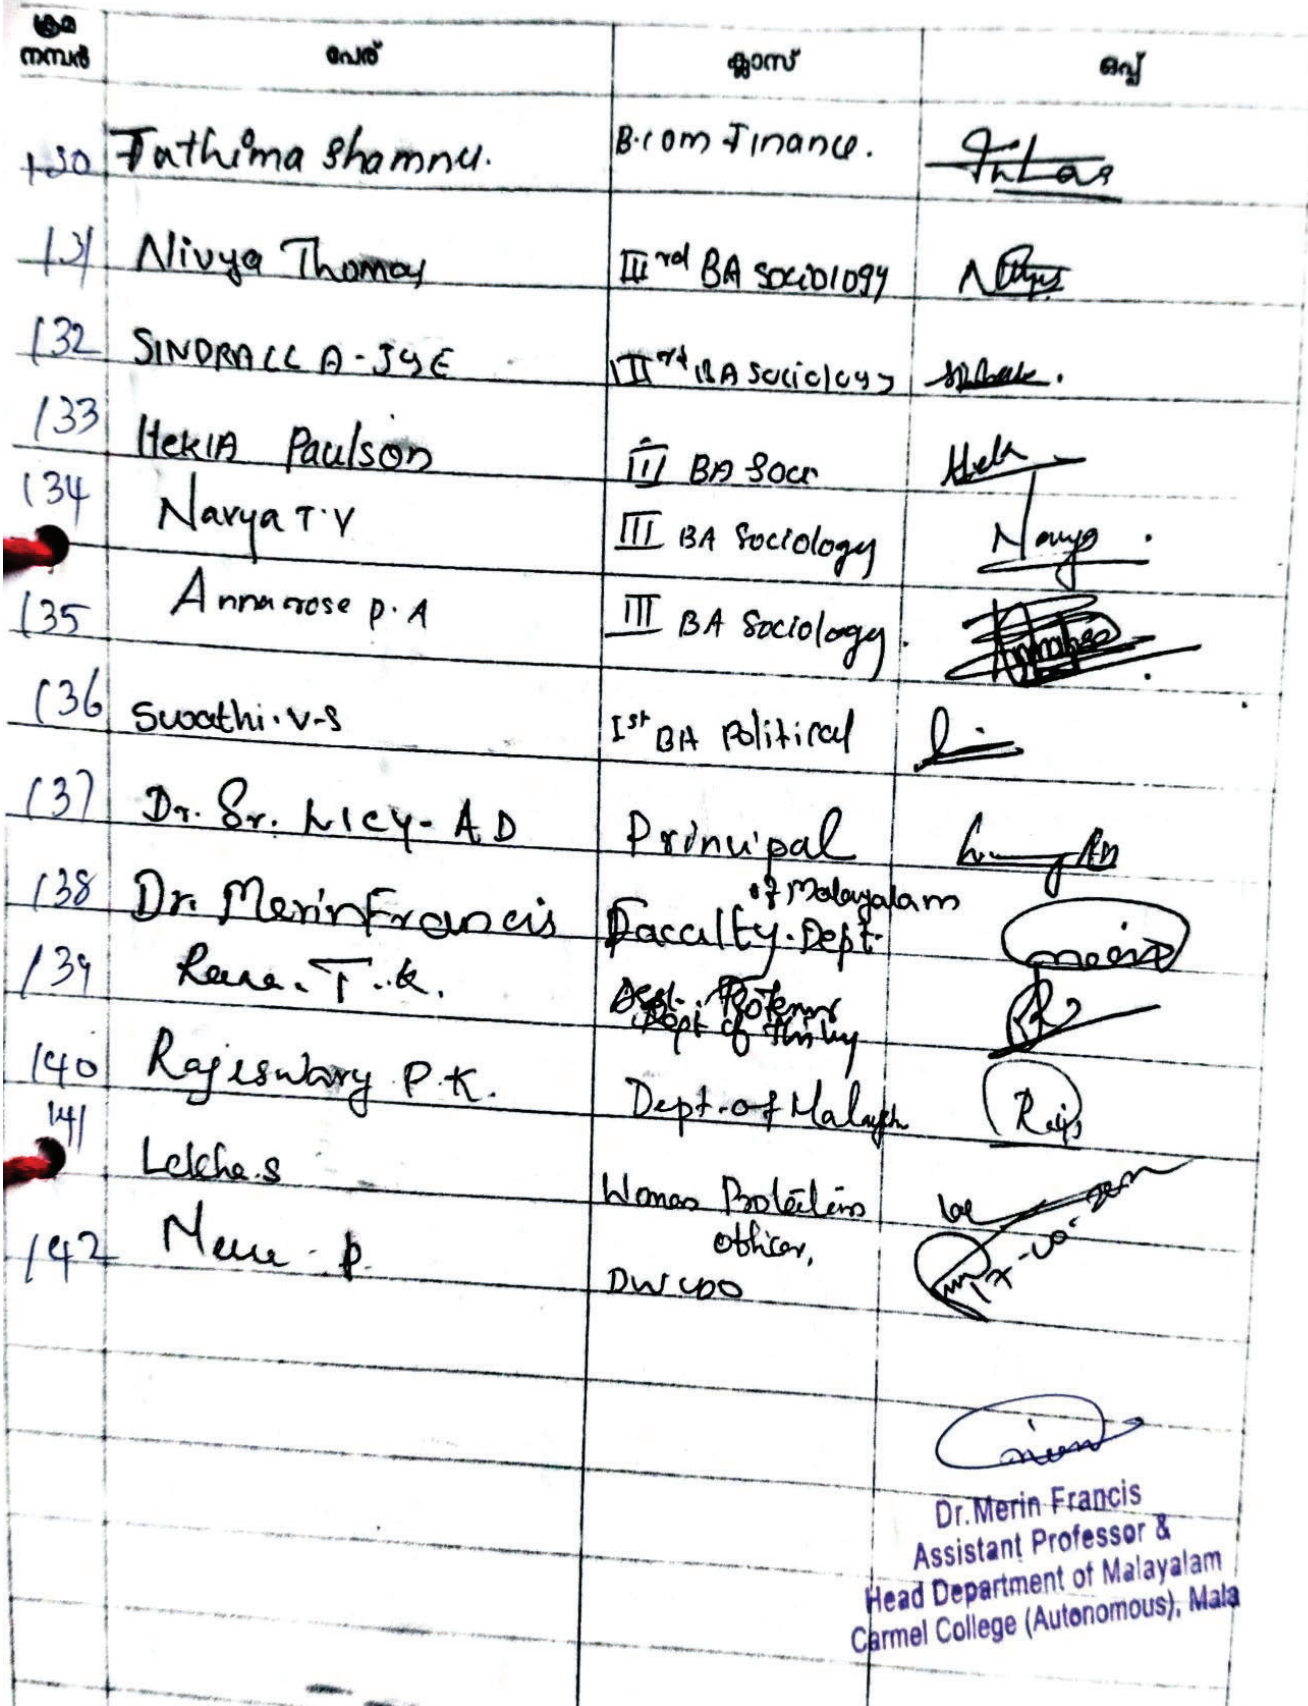 ക്രമ നമ്പർ പേര് ക്ലാസ് ഒപ്പ്
130 Fathima Shamnu. B.com Finance.
131 Nivya Thomas III rd BA Sociology
132 SINDRALL A-JYE III rd BA Sociology
133 HEKIA Paulson III BA Soci
134 Navya T.V III BA Sociology Navya
135 Annarose P.A III BA Sociology.
136 Swathi.V-S Ist BA Political
137 Dr. Sr. Licy- A D Principal
138 Dr. Merin Francis Faculty. Dept. of Malayalam
139 T.K. Asst. Professor
Dept of
140 Rajeswary P.K. Dept. of
141 Lekha.S Women Protection
Officer,
142 P. DWCDO
Dr.Merin Francis
Assistant Professor &
Head Department of Malayalam
Carmel College (Autonomous), Mala